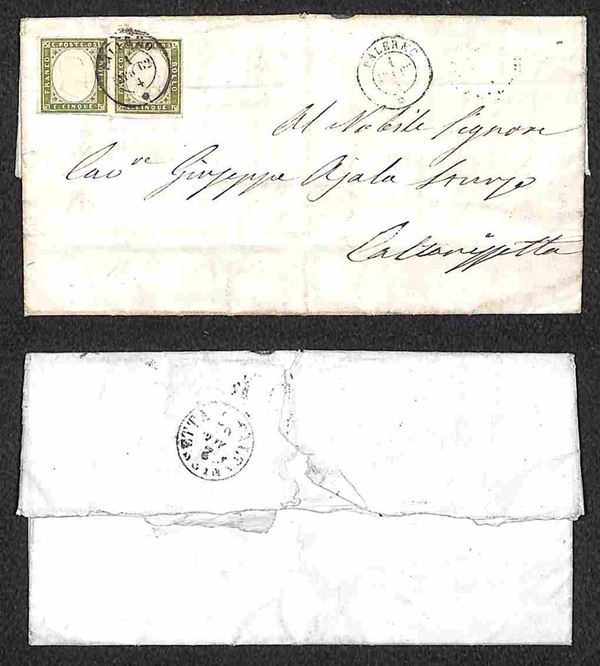 C. POSTE DA
FRANCO
C. CINQUE
BOLLO
C. CINQUE
PALERMO
Al Nobile Signore
Cav.re Giuseppe Ajala
Caltanissetta
CALTANISSETTA